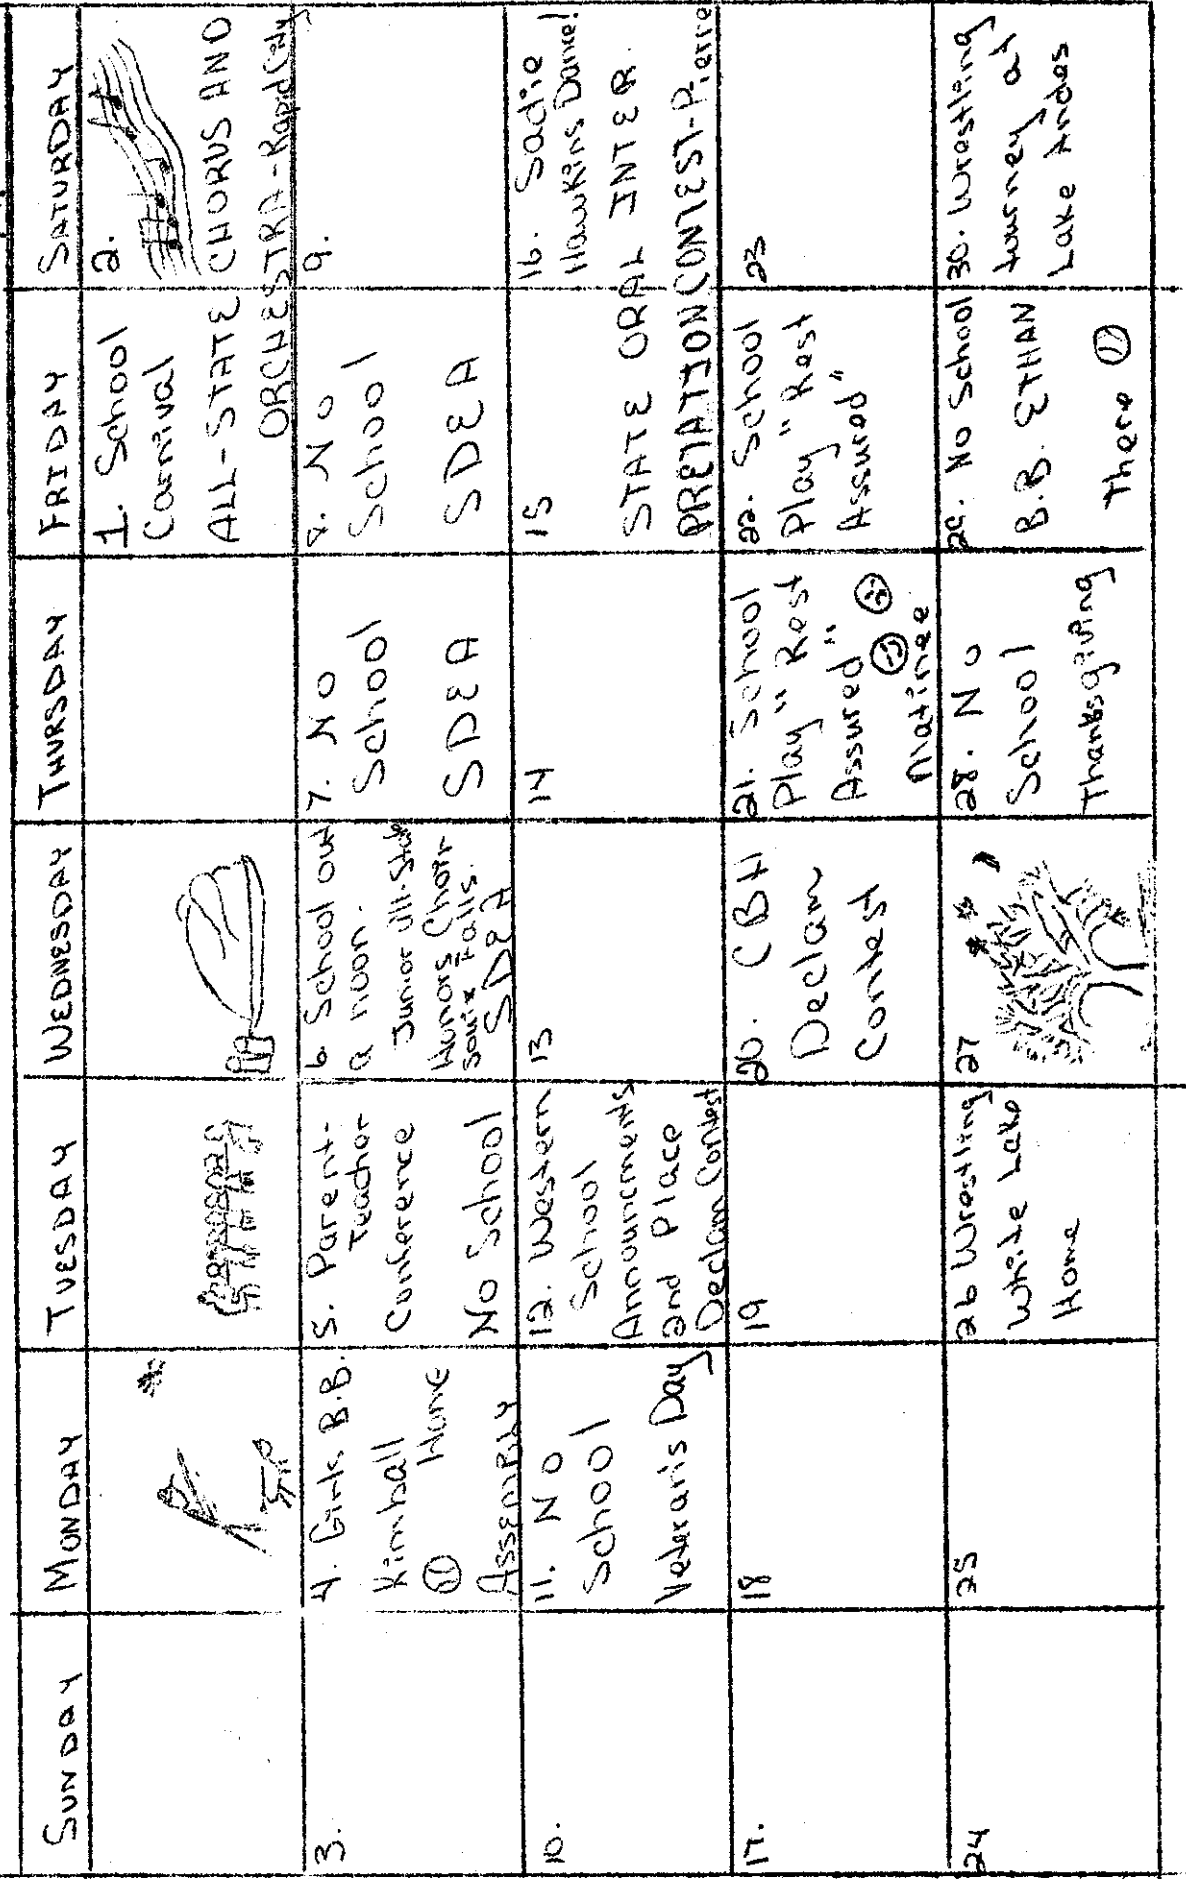 SUNDAY
MONDAY
TUESDAY
WEDNESDAY
THURSDAY
FRIDAY
SATURDAY
1. School
Carnival
2.
ALL-STATE CHORUS AND
ORCHESTRA-Rapid City
3.
4. Girls B.B.
Kimball
Home
ASSEMBLY
5. Parent-
Teacher
Conference
No School
6 School out
a noon.
Junior All-State
Honors Choir
Sioux Falls.
SDEA
7. No
School
SDEA
8. No
School
SDEA
9.
10.
11. No
School
Veterans Day
12. Western
School
Announcments
2nd Place
Declam Contest
13
14
15
16. Sadie
Hawkins Dance!
STATE ORAL INTER.
PRETATION CONTEST-Pierre
17.
18
19
20. CBH
Declam
Contest
21. School
Play "Rest
Assured"
Matinee
22. School
Play "Rest
Assured"
23
24
25
26 Wrestling
White Lake
Home
27
28. No
School
Thanksgiving
29. No School
B.B. ETHAN
There
30. Wrestling
tourney at
Lake Andes